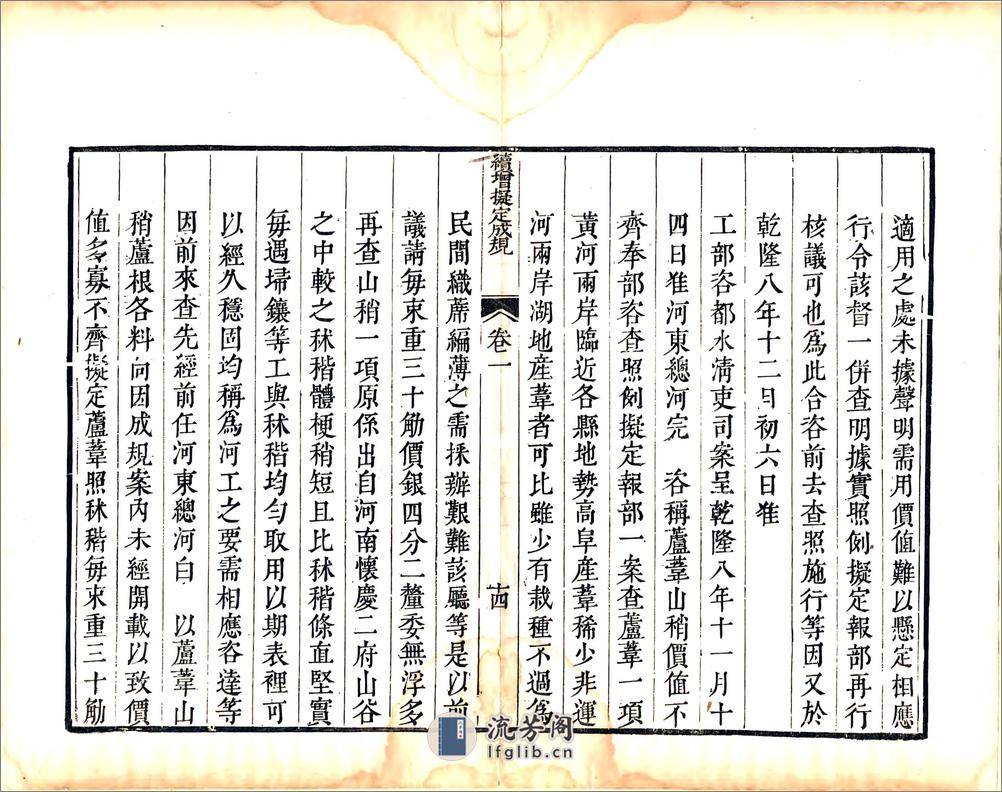 適用之處未據聲明需用價值難以懸定相應
行令該督一併查明據實照例擬定報部再行
核議可也爲此合咨前去查照施行等因又於
乾隆八年十二月初六日准
工部咨都水清吏司案呈乾隆八年十一月十
四日准河東總河完　咨稱蘆葦山稍價值不
齊奉部咨查照例擬定報部一案查蘆葦一項
黃河兩岸臨近各縣地勢高阜産葦稀少非運
河兩岸湖地産葦者可比雖少有栽種不過爲
續增擬定成規
卷一
十四
民間織蓆編薄之需採辦艱難該廳等是以前
議請每束重三十觔價銀四分二釐委無浮多
再查山稍一項原係出自河南懷慶二府山谷
之中較之秫稭體梗稍短且比秫稭條直堅實
每遇埽鑲等工與秫稭均勻取用以期表裡可
以經久穩固均稱爲河工之要需相應咨達等
因前來查先經前任河東總河白　以蘆葦山
稍蘆根各料向因成規案內未經開載以致價
值多寡不齊擬定蘆葦照秫稭每束重三十觔
流芳阁
lfglib.cn